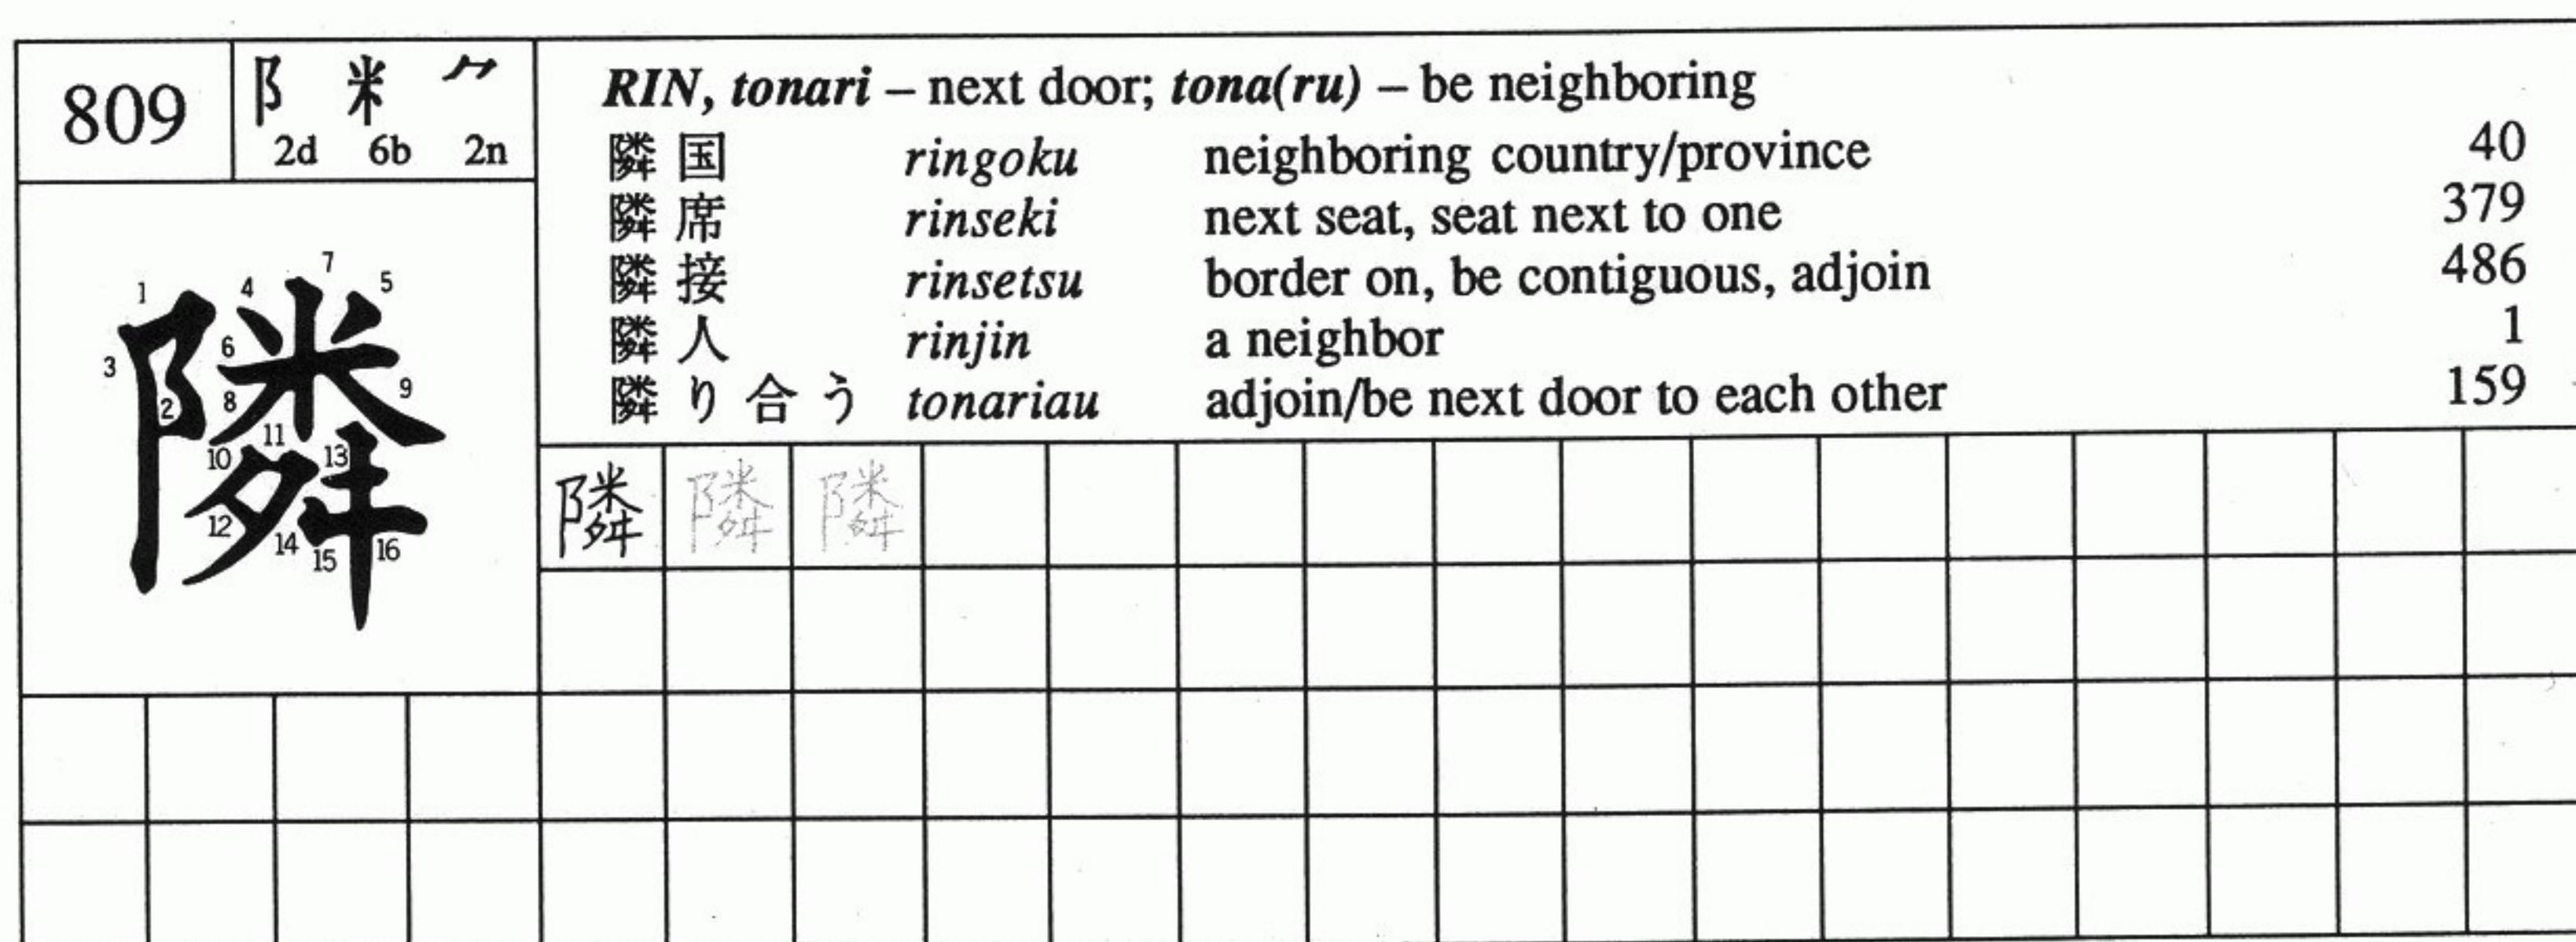 809
阝 米 𠂊
2d 6b 2n
RIN, tonari – next door; tona(ru) – be neighboring
隣国 ringoku neighboring country/province 40
隣席 rinseki next seat, seat next to one 379
隣接 rinsetsu border on, be contiguous, adjoin 486
隣人 rinjin a neighbor 1
隣り合う tonariau adjoin/be next door to each other 159
隣
1 2 3 4 5 6 7 8 9 10 11 12 13 14 15 16
隣 隣 隣